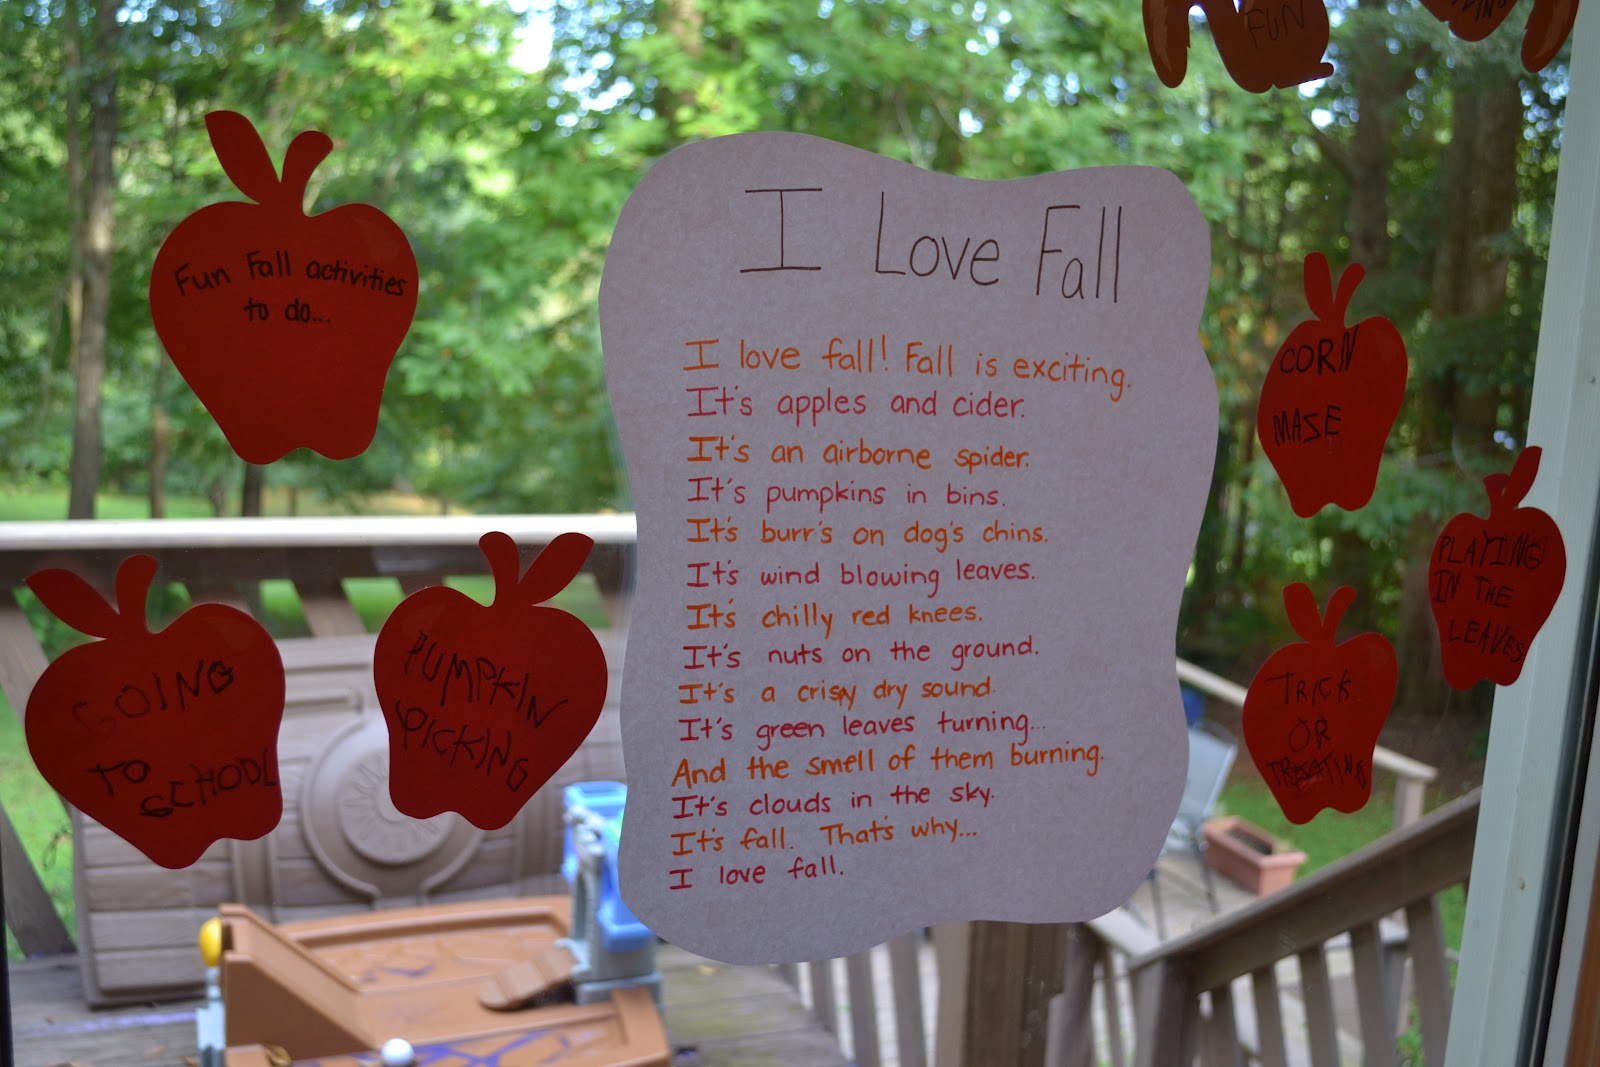 Fun Fall activities
to do...
GOING
TO
SCHOOL
PUMPKIN
PICKING
I Love Fall
I love fall! Fall is exciting.
It's apples and cider.
It's an airborne spider.
It's pumpkins in bins.
It's burr's on dog's chins.
It's wind blowing leaves.
It's chilly red knees.
It's nuts on the ground.
It's a crispy dry sound.
It's green leaves turning...
And the smell of them burning.
It's clouds in the sky.
It's fall. That's why...
I love fall.
FUN
CORN
MASE
PLAYING
IN THE
LEAVES
TRICK
OR